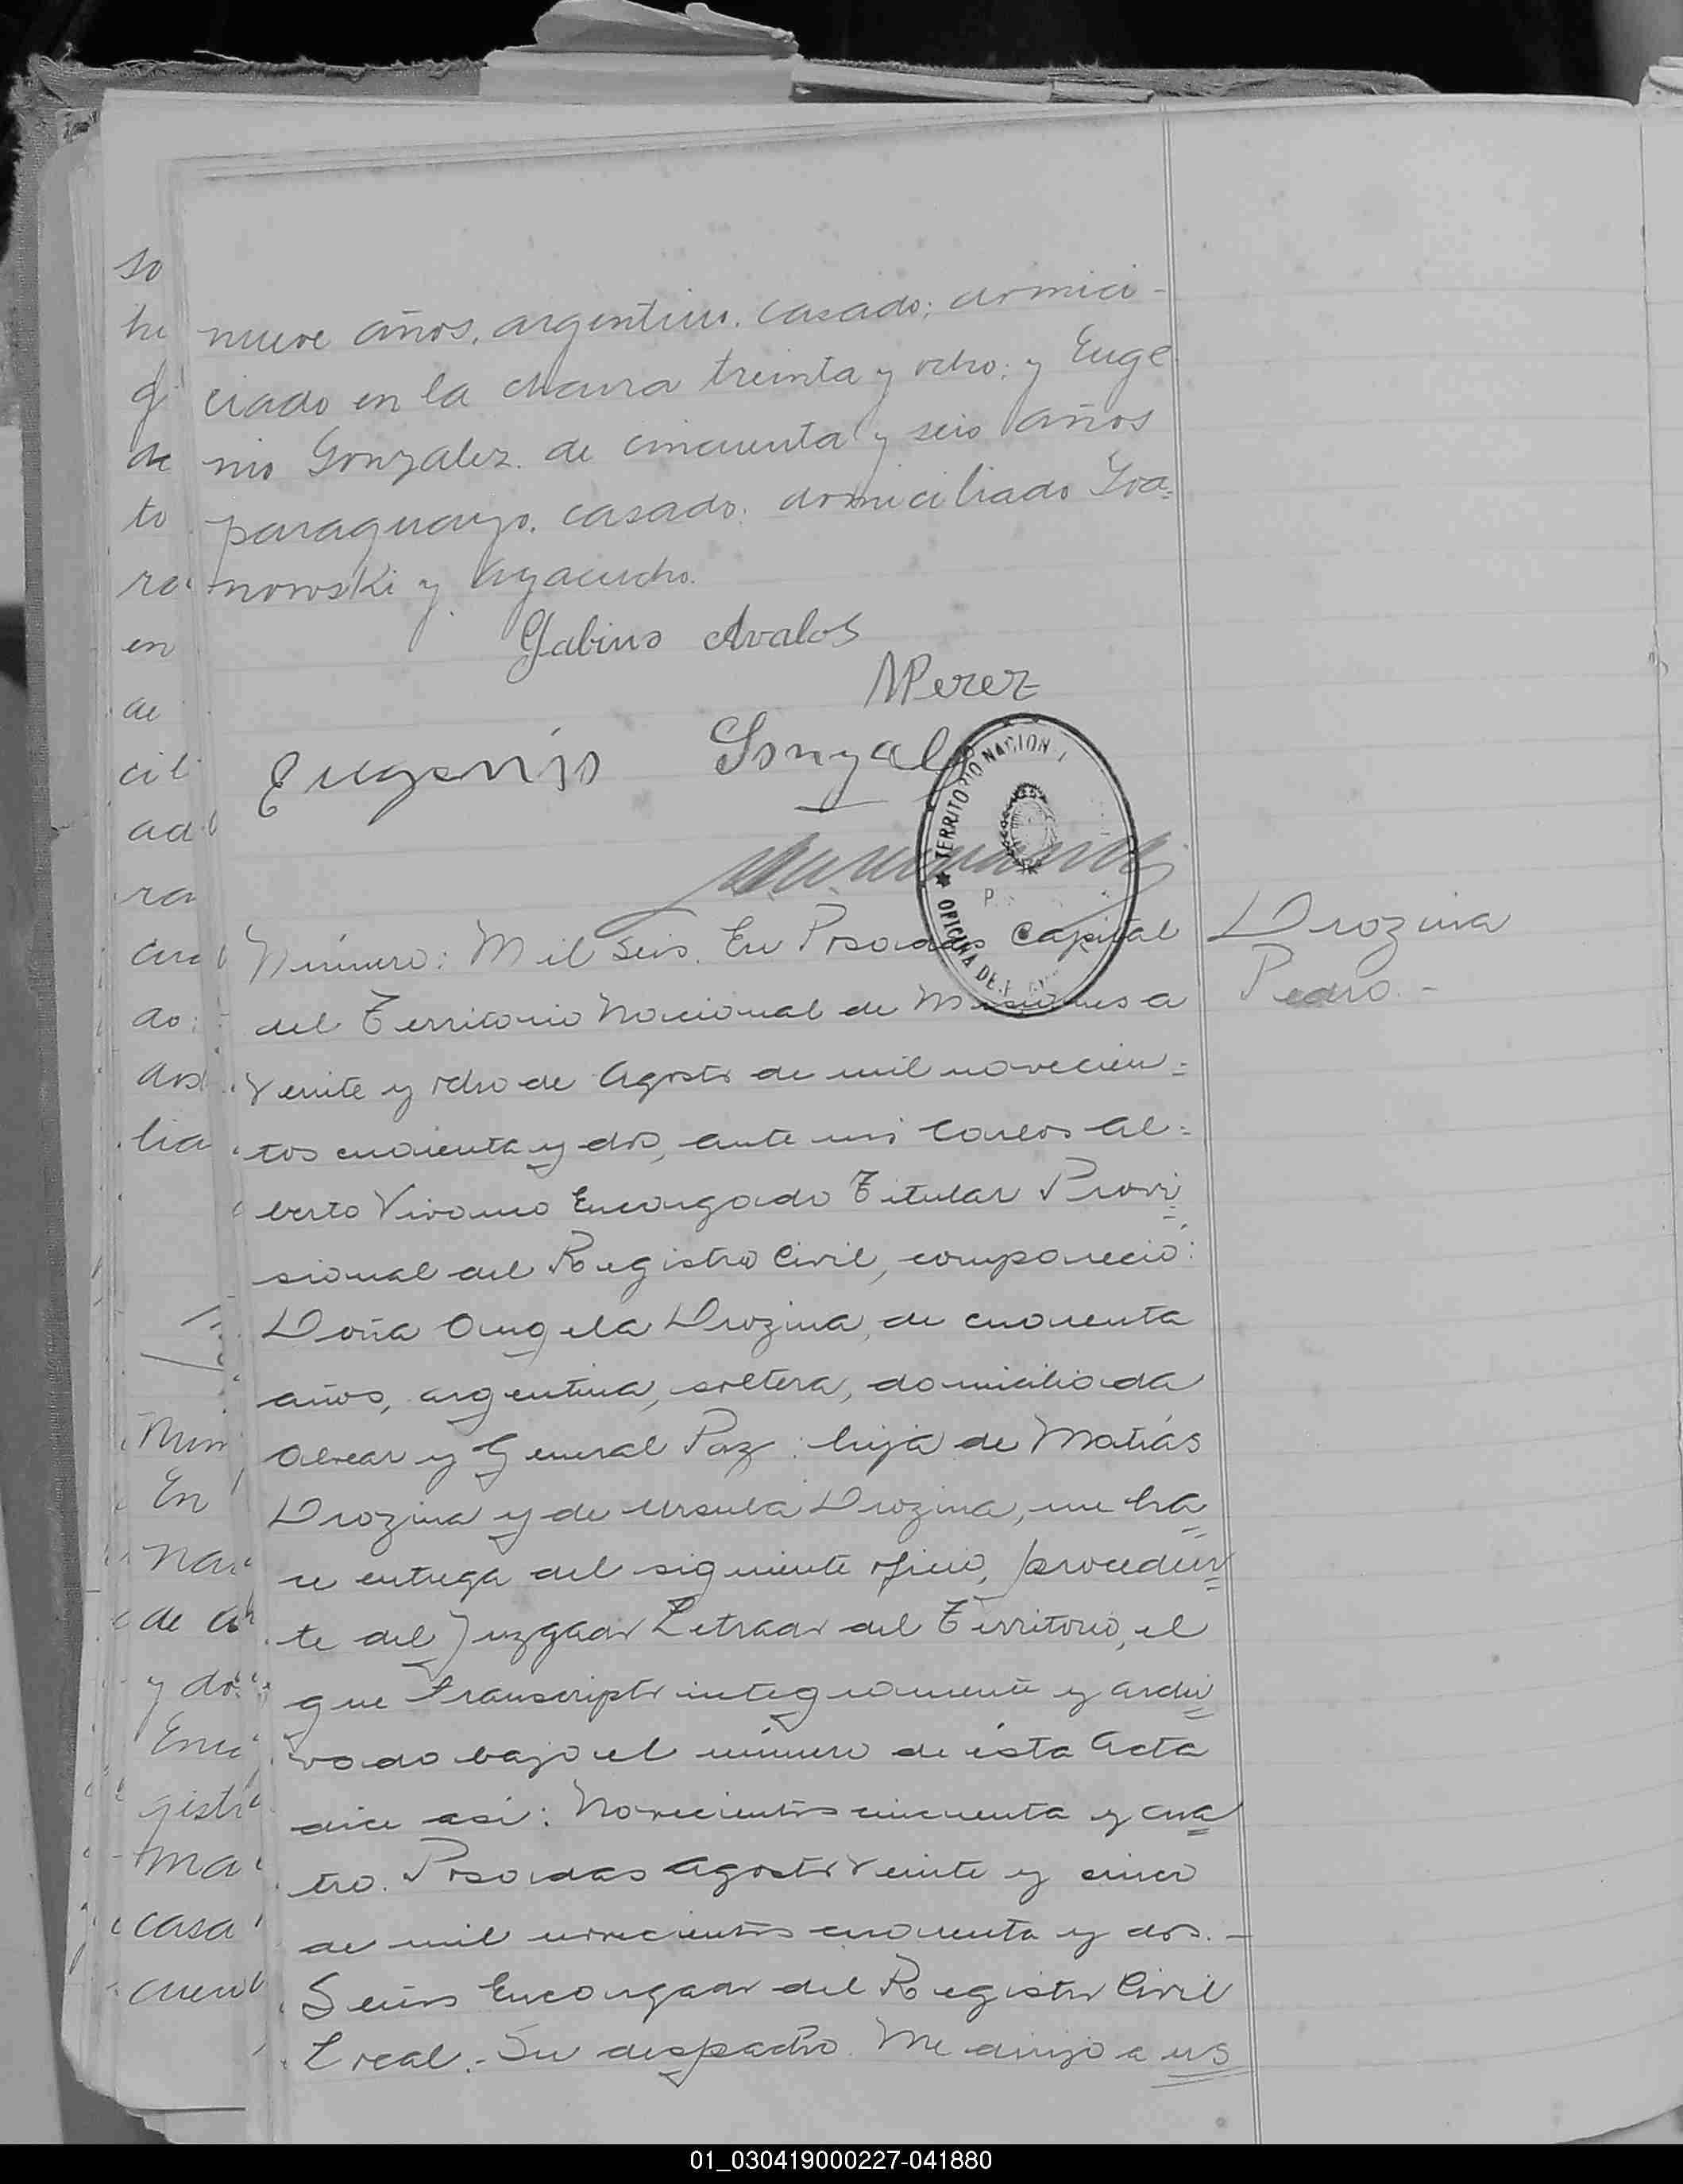 so
hi
de
to
en
de
cil
ad
ra
do:
lia
nueve años, argentino, casado; domici-
ciado en la chacra treinta y ocho; y Euge
nio Gonzalez. de cincuenta y seis años
paraguayo. casado. domiciliado Yra=
nowski y Ayacucho.
Gabino Avalos
NPerez
Eugenijo Gonzalez
TERRITORIO NACION
OFICINA DE
Número: Mil seis. En Posadas Capital
del Territorio Nacional de Misiones a
veinte y ocho de Agosto de mil novecien=
tos cuarenta y dos, ante mi Carlos Al=
berto Vivanco Encargado Titular Provi=
sional del Registro Civil, compareció:
Doña Angela Drozina, de cuarenta
años, argentina, soltera, domiciliada
Alvear y General Paz: hija de Matiás
Drozina y de Ursula Drozina, me ha=
ce entrega del siguiente oficio, proceden=
te del Juzgado Letrado del Territorio, el
que transcripto integramente y archi=
vado bajo el número de ésta Acta
dice asi: Novecientos cincuenta y cua=
tro. Posadas Agosto veinte y cinco
de mil novecientos cuarenta y dos.-
Señor Encargado del Registro Civil
Local.- Su despacho. Me dirijo a us
Drozina
Pedro.-
Num
En
nar
de
y do
Enca
gistr
ma
casa
cuen
01_030419000227-041880